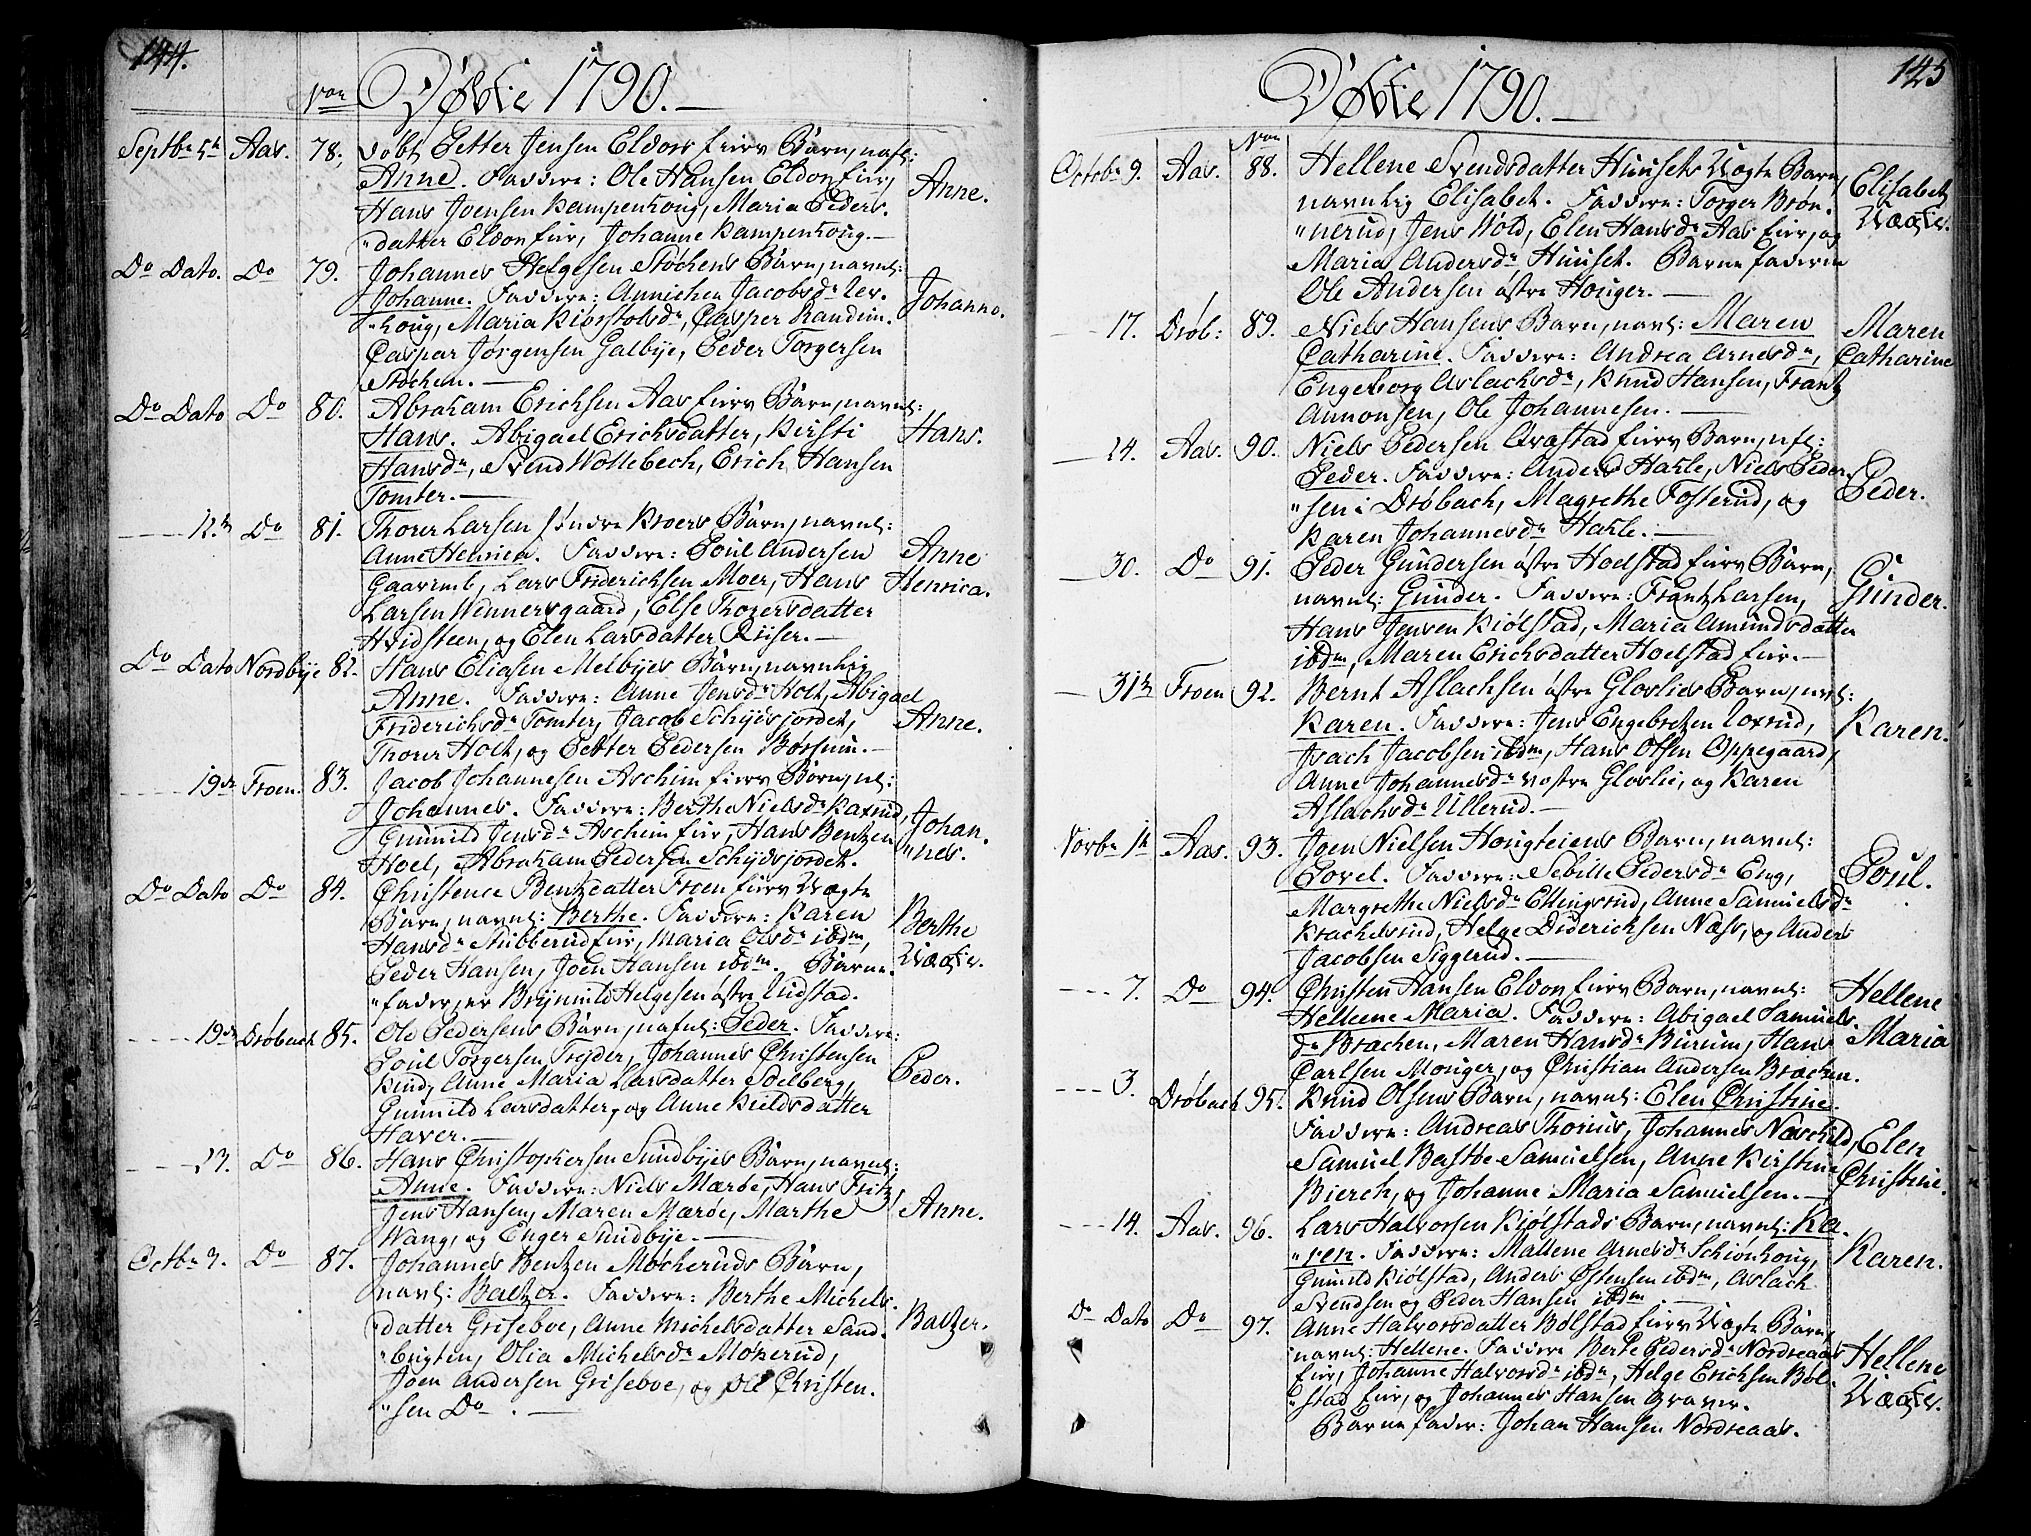 144.
Nᵒʳ Døbte 1790.
Septbr 5te Aas. 78. døbt Petter Jensen Eldors Eiers Barn, nafl:
Anne. Faddere: Ole Hansen Eldor Eier,
Hans Joensen Kampenhoug, Maria Peders-
"datter Eldor Eier, Johanne Kampenhoug.
Anne.
Do Dato. Do 79. Johannes Helgesen Støchens Barn, navnl:
Johanne. Faddere: Annichen Jacobsdr Ler-
"houg, Maria Kiørstolsdr, Casper Randem.
Caspar Jørgensen Galbye, Peder Torgersen
Støchen.
Johanne.
Do Dato Do 80. Abraham Ericksen Aas Eiers Barn, navnl:
Hans. Abigael Ericksdatter, Kirsti
Hansdr, Svend Wollebech, Erich Hansen
Tomter.
Hans.
12te Do 81. Thorer Larsen søndre Kroers Barn, navnl:
Anne Henrica. Faddere: Poul Andersen
Lars Friderichsen Moer, Hans
Larsen Wennersgaard, Else Thogersdatter
Hvidsteen, og Elen Larsdatter Riiser.
Anne
Henrica.
Do Dato Nordbye 82. Hans Eliasen Melbyes Barn, navnlig
Anne. Faddere: Anne Jensdr Holt, Abigael
Friderichsdr Tomter, Jacob Schydsjordet,
Thorer Holt, og Petter Pedersen Børsum.
Anne.
19de Froen. 83. Jacob Johannesen Aschim Eiers Barn, nl:
Johannes. Faddere: Berthe Nielsdr Kaxrud,
Gunnild Jensdr Aschem Eier, Hans Bentzen
Hoel, Abraham Pedersen Schydsjordet.
Johan-
"nes.
Do Dato Do 84. Christence Bentzdatter Froen Eiers Uægte
Barn, navnl: Berthe. Faddere: Karen
Hansdr Stubberud Eier, Maria Olsdr ibdm,
Peder Hansen, Joen Hansen ibdm. Barne-
"fader, er Brynnild Helgesen østre Udstad.
Berthe
Uægte.
19de Drøbach 85. Ole Pedersens Barn, nafnl: Peder. Faddere:
Poul Torgersen Tryder, Johannes Christensen
Kind, Anne Maria Larsdatter Solberg,
Gunnild Larsdatter, og Anne Kieldsdatter
Haver.
Peder.
23. Do 86. Hans Christophersen Sundbyes Barn, navnl:
Anne. Faddere: Niels Mærøe, Hans Fritz,
Jens Hansen, Maren Mærøe, Marthe
Wang, og Enger Sundbye.
Anne.
Octbr 3. Do 87. Johannes Bentzen Møcheruds Barn,
navnl: Baltzer. Faddere: Berthe Michels-
"datter Griseboe, Anne Michelsdatter Sand-
"bugten, Olia Michelsdr Mokerud,
Joen Andersen Griseboe, og Ole Christen-
"sen Do.
Baltzer.
145
Døbte 1790.
Nᵒʳ
Octobr 9. Aas. 88. Hellene Svendsdatter Huusets Uægte Barn,
navnlig Elisabet. Faddere: Torger Brøn-
"nerud, Jens Wold, Elen Hansdr Aas Eier, og
Maria Andersdr Huuset. Barne faderen
Ole Andersen østre Houger.
Elisabet
Uægte.
17. Drøb: 89. Niels Hansens Barn, navnl: Maren
Catharine. Faddere: Andrea Arnesdr,
Engeborg Aslachsdr, Knud Hansen, Frantz
Annonsen, Ole Johannesen.
Maren
Catharine
24. Aas. 90. Niels Pedersen Qvæstad Eiers Barn, nfl:
Peder. Faddere: Anders Hakle, Niels Peder-
"sen i Drøbach, Magrethe Fosterud, og
Karen Johannesdr Hakle.
Peder.
30. Do 91. Peder Gundersen østre Hoelstad Eiers Barn,
navnl: Gunder. Faddere: Frantz Larsen,
Hans Jensen Kiølstad, Maria Amundsdatter
ibdm, Maren Erichsdatter Hoelstad Eier.
Gunder.
31te Froen 92. Bernt Aslachsen østre Gloslies Barn, nvl:
Karen. Faddere: Jens Engebretzen Loxrud,
Isach Jacobsen ibdm, Hans Olsen Oppegaard,
Anne Johannesdr vestre Gloslie, og Karen
Aslachsdr Ullerud.
Karen.
Novbr 1te Aas. 93. Joen Nielsen Hougteiens Barn, navnl:
Povel. Faddere: Sebille Pedersdr Eng,
Margrethe Nielsdr Ellingsrud, Anne Samuelsdr
Krachelsrud, Helge Diderichsen Næss, og Anders
Jacobsen Siggerud.
Poul.
7. Do 94. Christen Hansen Eldor Eiers Barn, navnl:
Helleene Maria. Faddere: Abigael Samuels-
dr Brachen, Maren Hansdr Burum, Hans
Carlsen Monger, og Christian Andersen Brachen.
Hellene
Maria
3. Drøbach 95. Knud Olsens Barn, navnl: Elen Christine.
Faddere: Andreas Thorius, Johannes Næschild,
Samuel Bastøe Samuelsen, Anne Kirstine
Bierch, og Johanne Maria Samuelsen.
Elen
Christine.
14. Aas. 96. Lars Halvorsen Kiølstads Barn, navnl: Ka-
"ren. Faddere: Mallene Arnesdr Schiønhoug,
Gunnild Kiølstad, Anders Østensen ibdm, Aslach
Svendsen og Peder Hansen ibdm
Karen.
Do Dato Do 97. Anne Halvorsdatter Bølstad Eiers Uægte Barn,
navnl: Hellene. Faddere Berte Pedersdr Nordreaas
Eier, Johanne Halvorsdr ibdm, Helge Erichsen Bøl-
"stad Eier, og Johannes Hansen Graver.
Barne fader: Johan Hansen Nordreaas.
Hellene
Uægte.